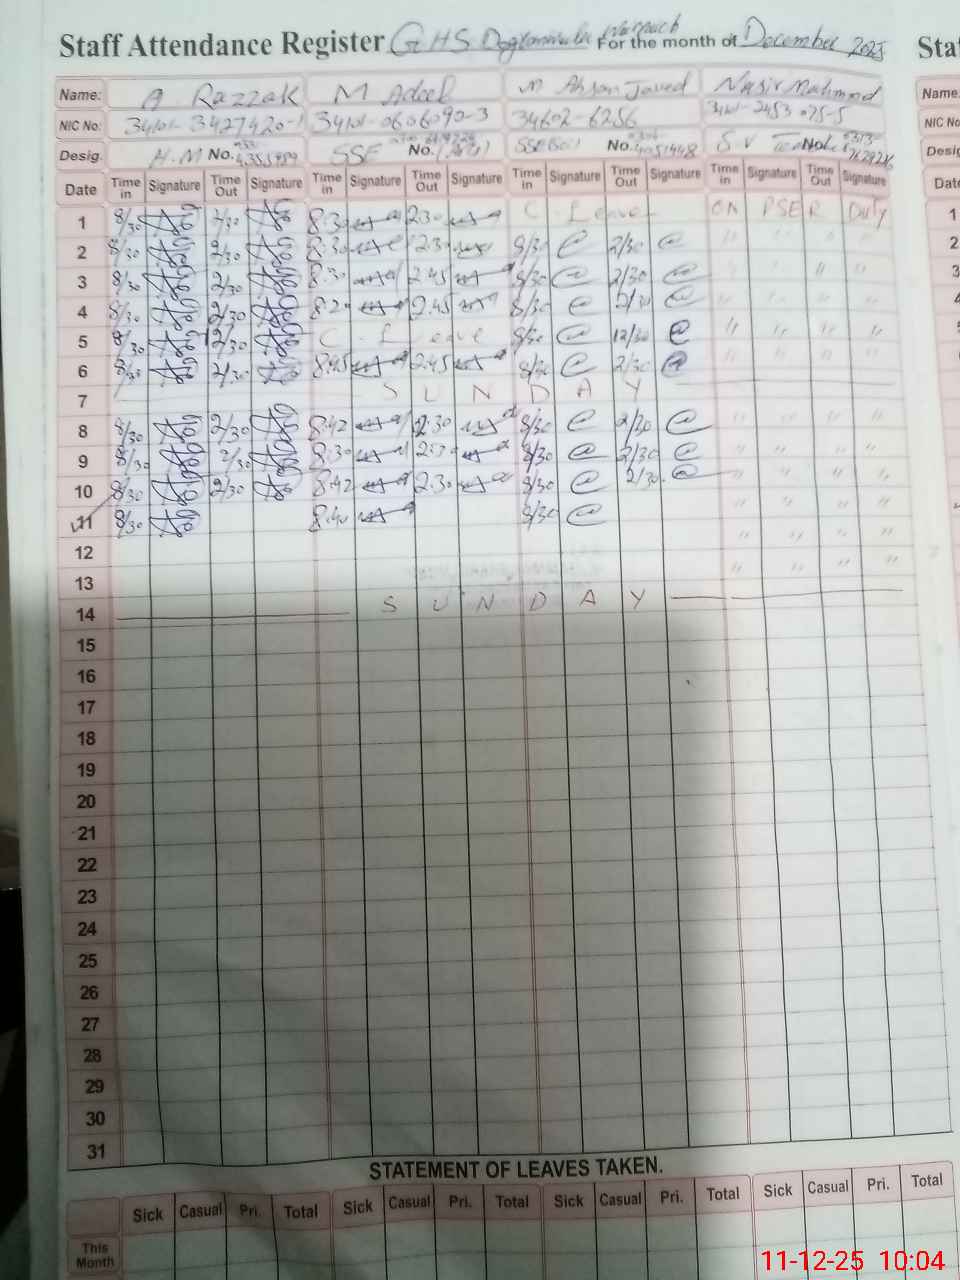 Staff Attendance Register GHS For the month of December 2025
Sta
Name: A Razzak M Adeel M Ahsan Javed Nasir Mahmood
Name
NIC No: 34101-3427420-1 34101-0606090-3 34602-6256 34101-2453075-5
NIC No
Desig. H.M No. SSE No. No. S.V No.
Desig
Date Time in Signature Time Out Signature Time in Signature Time Out Signature Time in Signature Time Out Signature Time in Signature Time Out Signature
Date
1 8/30 2/30 8.30 2.30 C Leave ON PSER Duty
1
2 8/30 2/30 8.30 2.30 8/30 @ 2/30 @ " " " "
2
3 8/30 2/30 8.30 2.45 8/30 @ 2/30 @ " " " "
3
4 8/30 2/30 8.2 2.45 8/30 @ 2/30 @ " " " "
4
5 8/30 12/30 C. Leave 8/30 @ 12/30 @ " " " "
5
6 8/30 2/30 8.45 2.45 8/30 @ 2/30 @ " " " "
6
7 SUNDAY
8 8/30 2/30 8.42 2.30 8/30 @ 2/30 @ " " " "
8
9 8/30 2/30 8.30 2.30 8/30 @ 2/30 @ " " " "
9
10 8/30 2/30 8.42 2.30 8/30 @ 2/30 @ " " " "
10
11 8/30 8.40 8/30 @ " " " "
12 " " " "
13 " " " "
14 SUNDAY
15
16
17
18
19
20
21
22
23
24
25
26
27
28
29
30
31
STATEMENT OF LEAVES TAKEN.
Sick Casual Pri. Total Sick Casual Pri. Total Sick Casual Pri. Total Sick Casual Pri. Total
This Month
11-12-25 10:04